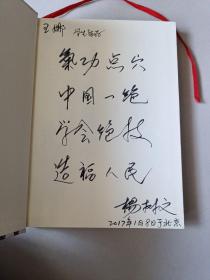 王娜
氣功点穴
中国一绝
学会绝技
造福人民
楊树文
2017年1月8日于北京